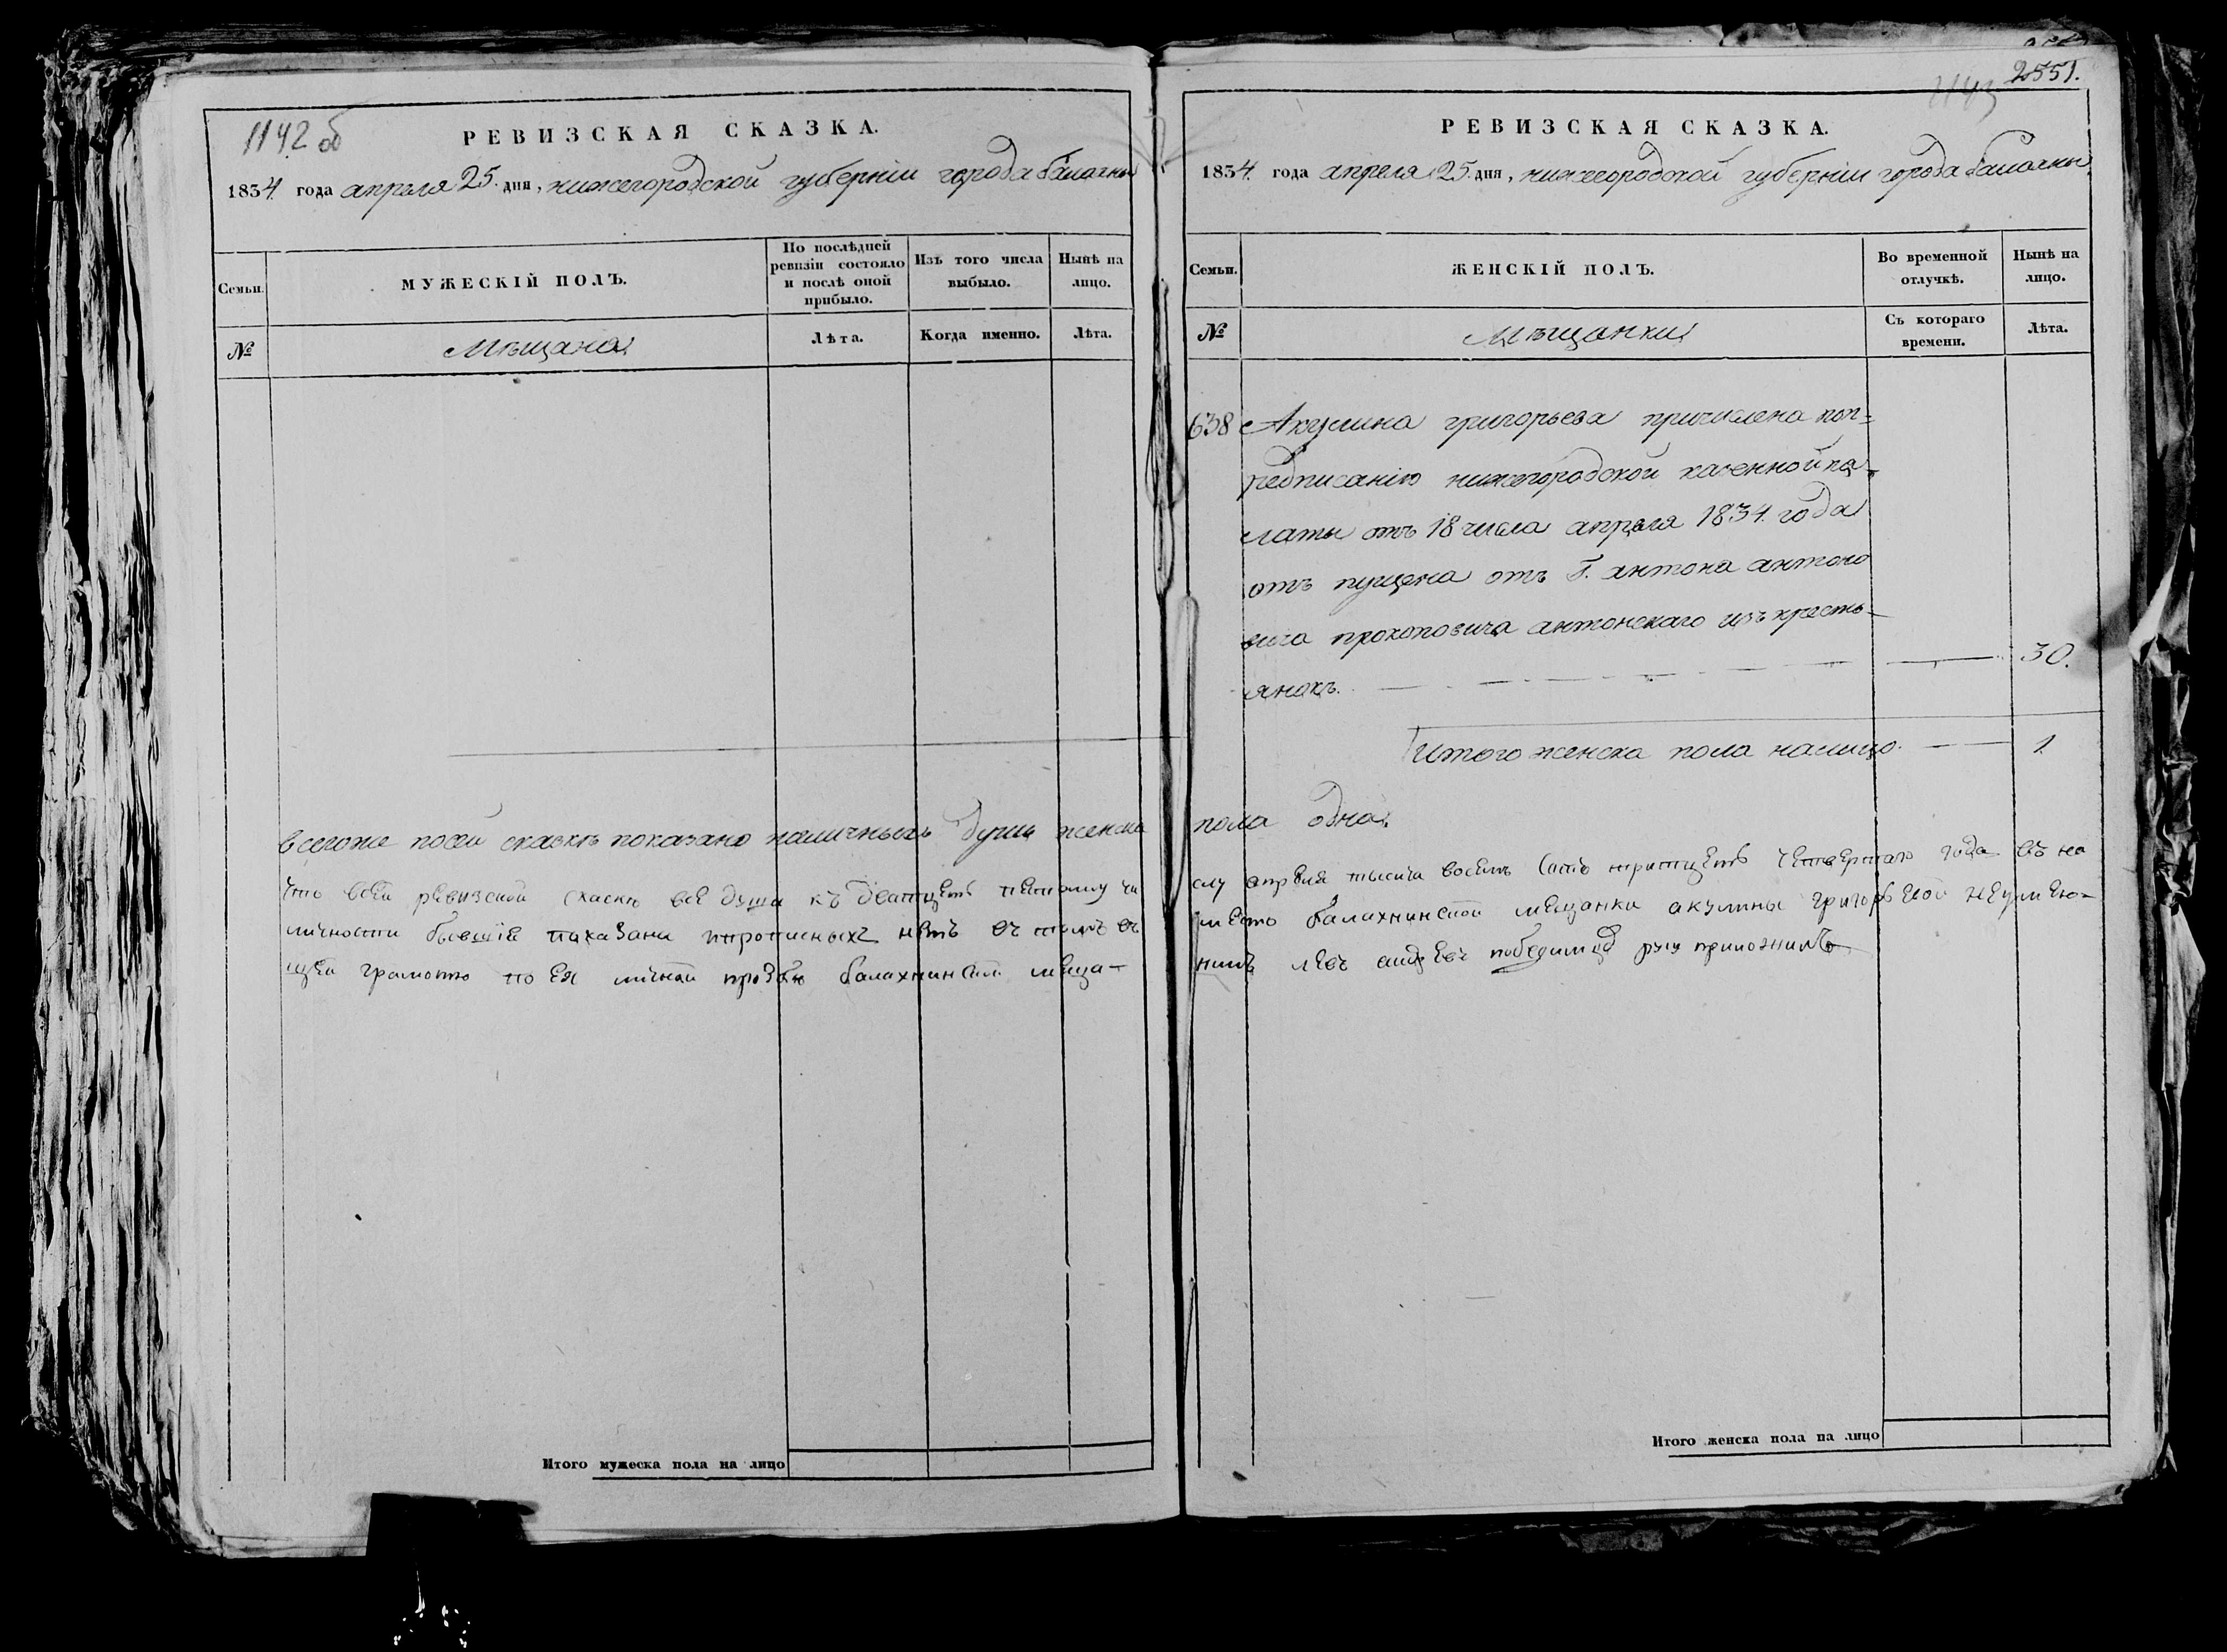 1142 об
РЕВИЗСКАЯ СКАЗКА.
1834 года апреля 25. дня, нижегородской губерніи города балахны
Семьи.
МУЖЕСКІЙ ПОЛЪ.
По послѣдней ревизіи состояло и послѣ оной прибыло.
Изъ того числа выбыло.
Нынѣ на лицо.
№
Мѣщана
Лѣта.
Когда именно.
Лѣта.
всегоже посей сказкѣ показано наличныхъ душъ женска
что всей ревизской скаскѣ все душа къ дватцеть петому чи
личности бывшіе показаны прописныхъ нѣтъ въ томъ въ
щей грамоте по ея личной прозбе балахнинской меща-
Итого мужеска пола на лицо
2551.
1143
РЕВИЗСКАЯ СКАЗКА.
1834. года апреля 25. дня, нижегородской губерніи города балахны.
Семьи.
ЖЕНСКІЙ ПОЛЪ.
Во временной отлучкѣ.
Нынѣ на лицо.
№
Мѣщанки
Съ котораго времени.
Лѣта.
638 Акулина григорьева причислена поп=
редписанію нижегородской казенной па-
латы отъ 18 числа апреля 1834. года
отъ пущена отъ Г. антона антоно
вича прокоповича антонскаго изъ кресть-
янокъ. 30.
Итого женска пола налицо. 1
пола одна.
слу апреля тысеча восемь сотъ тритцеть четвертаго года въ на
место балахнинской мещанки акулины григорьевой неумею-
нинъ левъ руку приложилъ
Итого женска пола на лицо